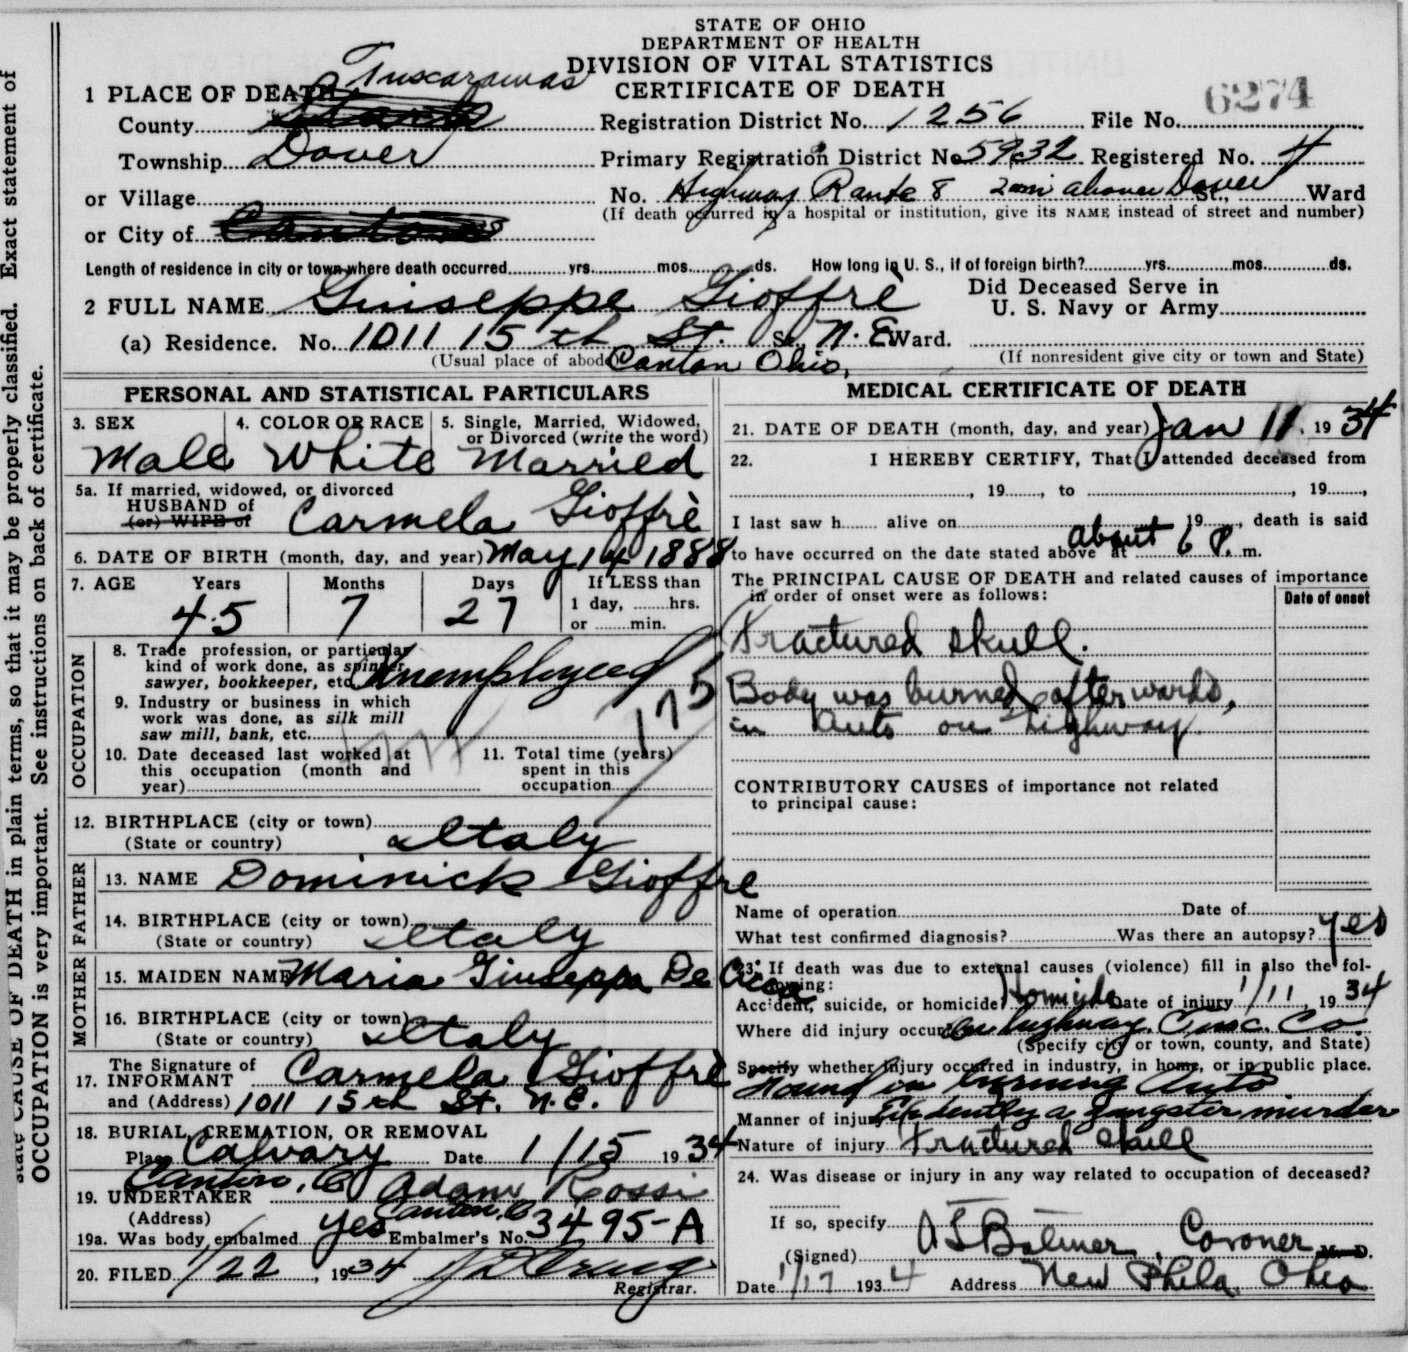 STATE OF OHIO
DEPARTMENT OF HEALTH
DIVISION OF VITAL STATISTICS
CERTIFICATE OF DEATH
6274
1 PLACE OF DEATH Tuscarawas
County Stark Registration District No. 1256 File No.
Township Dover Primary Registration District No. 5932 Registered No. 4
or Village No. Highway Route 8 2 mi above Dover St., Ward
(If death occurred in a hospital or institution, give its NAME instead of street and number)
or City of Canton
Length of residence in city or town where death occurred yrs. mos. ds. How long in U. S., if of foreign birth? yrs. mos. ds.
2 FULL NAME Giuseppe Gioffrè Did Deceased Serve in
U. S. Navy or Army
(a) Residence. No. 1011 15th St. St., N.E. Ward.
(Usual place of abode) Canton Ohio. (If nonresident give city or town and State)
PERSONAL AND STATISTICAL PARTICULARS
3. SEX 4. COLOR OR RACE 5. Single, Married, Widowed,
or Divorced (write the word)
Male White Married
5a. If married, widowed, or divorced
HUSBAND of
(or) WIFE of Carmela Gioffrè
6. DATE OF BIRTH (month, day, and year) May 14 1888
7. AGE Years Months Days If LESS than
1 day, hrs.
or min.
45 7 27
OCCUPATION
8. Trade profession, or particular
kind of work done, as spinner,
sawyer, bookkeeper, etc. Unemployed
9. Industry or business in which
work was done, as silk mill
saw mill, bank, etc.
175
10. Date deceased last worked at
this occupation (month and
year)
11. Total time (years)
spent in this
occupation
12. BIRTHPLACE (city or town)
(State or country) Italy
FATHER
13. NAME Dominick Gioffre
14. BIRTHPLACE (city or town)
(State or country) Italy
MOTHER
15. MAIDEN NAME Maria Giuseppa De
16. BIRTHPLACE (city or town)
(State or country) Italy
17. The Signature of
INFORMANT Carmela Gioffrè
and (Address) 1011 15th St. N.E.
18. BURIAL, CREMATION, OR REMOVAL
Place Calvary Date 1/15 1934
Canton, O.
19. UNDERTAKER Adam Rossi
(Address) Canton, O.
19a. Was body embalmed yes Embalmer's No. 3495-A
20. FILED 1/22, 1934
Registrar.
MEDICAL CERTIFICATE OF DEATH
21. DATE OF DEATH (month, day, and year) Jan 11, 1934
22. I HEREBY CERTIFY, That I attended deceased from
, 19 , to , 19 ,
I last saw h alive on 19 , death is said
to have occurred on the date stated above at about 6 P. m.
The PRINCIPAL CAUSE OF DEATH and related causes of importance
in order of onset were as follows: Date of onset
Fractured skull.
Body was burned afterwards,
in Auto on highway.
CONTRIBUTORY CAUSES of importance not related
to principal cause:
Name of operation Date of
What test confirmed diagnosis? Was there an autopsy? yes
23. If death was due to external causes (violence) fill in also the following:
Accident, suicide, or homicide? Homicide Date of injury 1/11, 1934
Where did injury occur? On highway. Tusc. Co.
(Specify city or town, county, and State)
Specify whether injury occurred in industry, in home, or in public place.
Found in burning Auto
Manner of injury Evidently a gangster murder
Nature of injury Fractured skull
24. Was disease or injury in any way related to occupation of deceased?
If so, specify
(Signed) Coroner M. D.
Date 1/17 1934 Address New Phila. Ohio
state CAUSE OF DEATH in plain terms, so that it may be properly classified. Exact statement of
OCCUPATION is very important. See instructions on back of certificate.